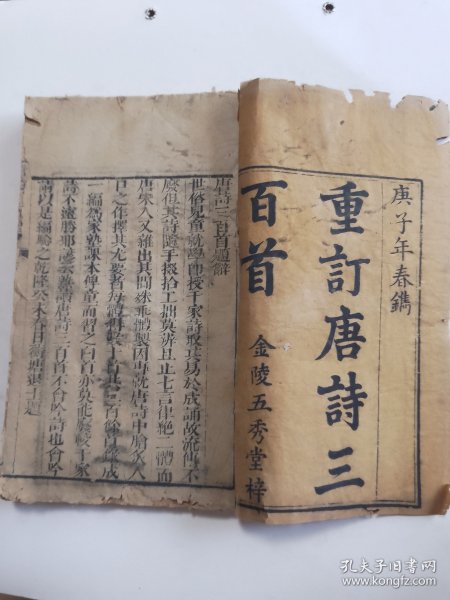 庚子年春鐫
重訂唐詩三
百首
金陵五秀堂梓
唐詩三百首題辭
世俗兒童就學即授千家詩取其易於成誦故流傳不
廢但其詩隨手掇拾工拙莫辨且止七言律絕二體而
唐宋人又雜出其間殊乖體製因專就唐詩中膾炙人
口之作擇其尤要者每體得數十首共三百餘首錄成
一編為家塾課本俾童而習之白首亦莫能廢較千家
詩不遠勝耶諺云熟讀唐詩三百首不會吟詩也會吟
請以是編驗之乾隆癸未春日蘅塘退士題
孔夫子旧书网
www.kongfz.com